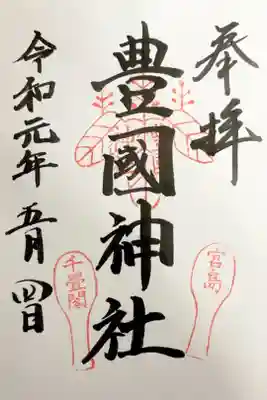 奉拝
豊國神社
宮島
千畳閣
令和元年五月四日